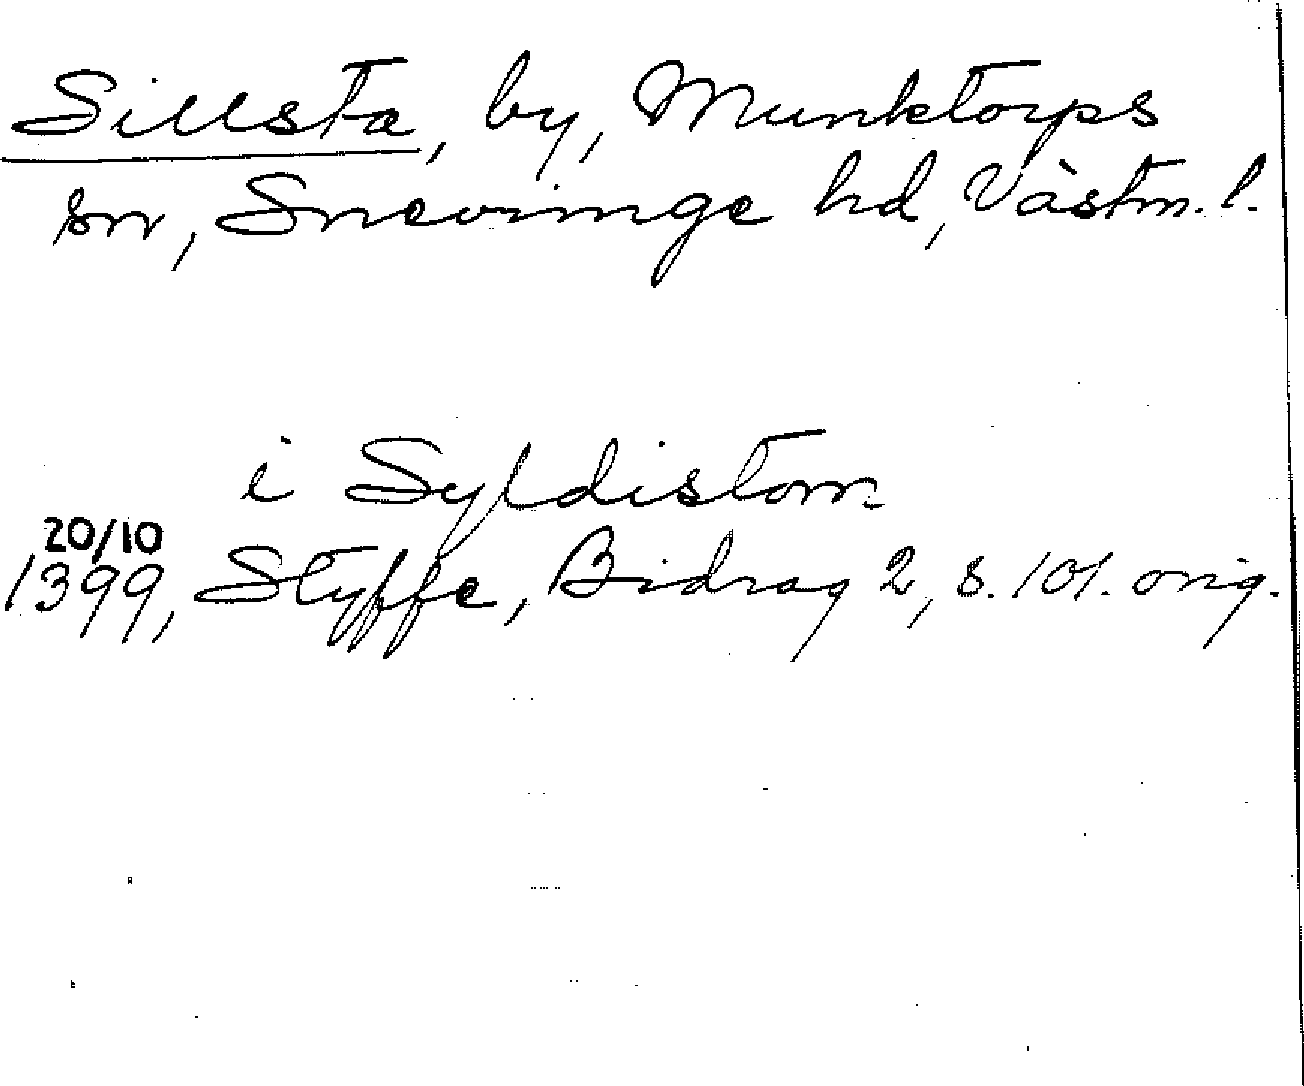 Sillsta, by, Munktorps
sn, Snevringe hd, Västm. l.
i Syldistom
20/10
1399, Styffe, Bidrag 2, s. 101. orig.